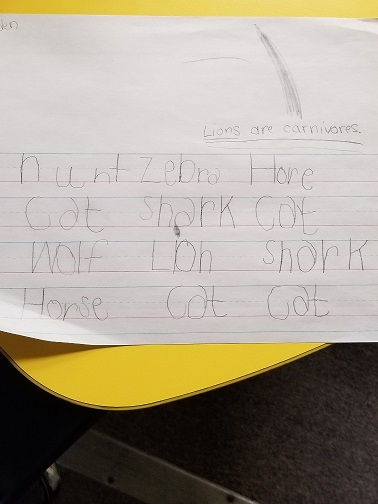 Lions are carnivores.
hunt Zebra Hore
Cat Shark Cat
Wolf Lion Shark
Horse Cat Cat